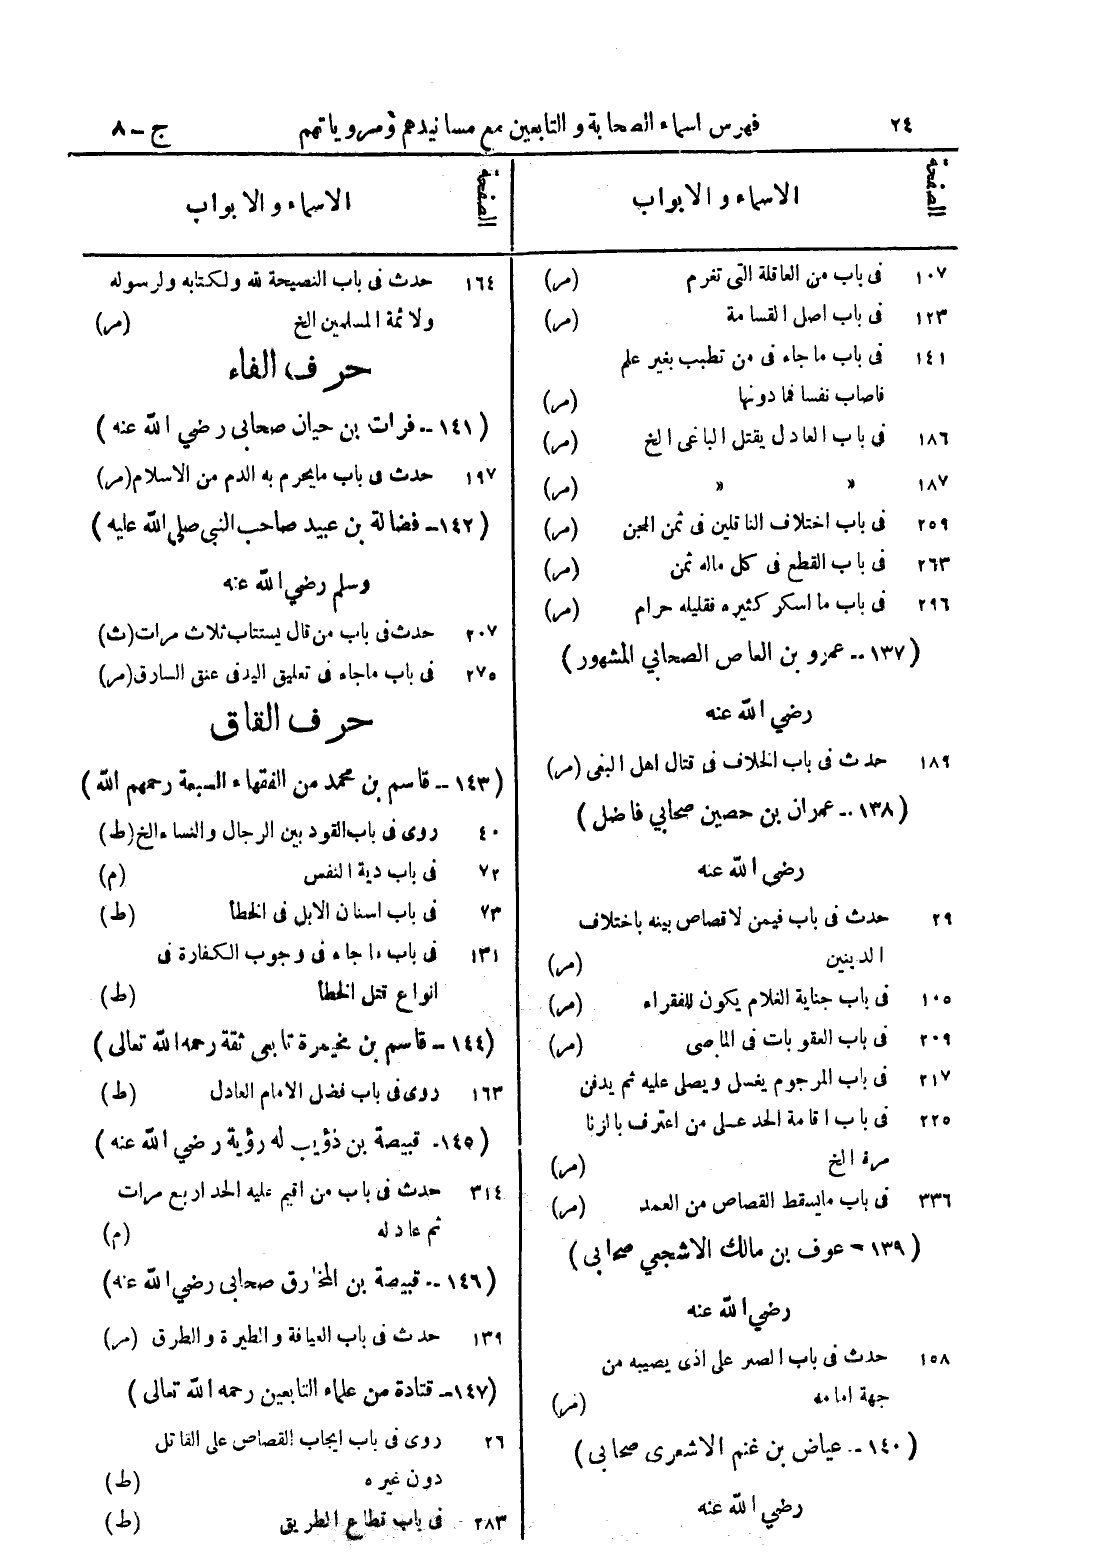 ٢٤ فهرس اسماء الصحابة والتابعين مع مسانيدهم ومروياتهم ج - ٨
الصفحة الاسماء والابواب
١٠٧ فى باب من العاقلة التى تغرم (مر)
١٢٣ فى باب اصل القسامة (مر)
١٤١ فى باب ماجاء فى من تطبب بغير علم
فاصاب نفسا فما دونها (مر)
١٨٦ فى باب العادل يقتل الباغى الخ (مر)
١٨٧ » » (مر)
٢٥٩ فى باب اختلاف الناقلين فى ثمن المجن (مر)
٢٦٣ فى باب القطع فى كل ماله ثمن (مر)
٢٩٦ فى باب ما اسكر كثيره فقليله حرام (مر)
(١٣٧ - عمرو بن العاص الصحابي المشهور)
رضي الله عنه
١٨٩ حدث فى باب الخلاف فى قتال اهل البغى (مر)
(١٣٨ - عمران بن حصين صحابي فاضل)
رضي الله عنه
٢٩ حدث فى باب فيمن لا قصاص بينه باختلاف
الدينين (مر)
١٠٥ فى باب جناية الغلام يكون للفقراء (مر)
٢٠٩ فى باب العقوبات فى المعاصى (مر)
٢١٧ فى باب المرجوم يغسل ويصلى عليه ثم يدفن
٢٢٥ فى باب اقامة الحد على من اعترف بالزنا
مرة الخ (مر)
٣٣٦ فى باب مايسقط القصاص من العمد (مر)
(١٣٩ - عوف بن مالك الاشجعي صحابى)
رضي الله عنه
١٥٨ حدث فى باب الصبر على اذى يصيبه من
جهة امامه (مر)
(١٤٠ - عياض بن غنم الاشعرى صحابى)
رضي الله عنه
الصفحة الاسماء والابواب
١٦٤ حدث فى باب النصيحة لله ولكتابه ولرسوله
ولائمة المسلمين الخ (مر)
حرف الفاء
(١٤١ - فرات بن حيان صحابى رضي الله عنه)
١٩٧ حدث فى باب مايحرم به الدم من الاسلام (مر)
(١٤٢ - فضالة بن عبيد صاحب النبي صلى الله عليه)
وسلم رضي الله عنه
٢٠٧ حدث فى باب من قال يستتاب ثلاث مرات (ث)
٢٧٥ فى باب ماجاء فى تعليق اليد فى عنق السارق (مر)
حرف القاق
(١٤٣ - قاسم بن محمد من الفقهاء السبعة رحمهم الله)
٤٠ روى فى باب القود بين الرجال والنساء الخ (ط)
٧٢ فى باب دية النفس (م)
٧٣ فى باب اسنان الابل فى الخطأ (ط)
١٣١ فى باب ماجاء فى وجوب الكفارة فى
انواع قتل الخطأ (ط)
(١٤٤ - قاسم بن مخيمرة تابعى ثقة رحمه الله تعالى)
١٦٣ روى فى باب فضل الامام العادل (ط)
(١٤٥ - قبيصة بن ذؤيب له رؤية رضي الله عنه)
٣١٤ حدث فى باب من اقيم عليه الحد اربع مرات
ثم عاد له (م)
(١٤٦ - قبيصة بن المخارق صحابى رضي الله عنه)
١٣٩ حدث فى باب العيافة والطيرة والطرق (مر)
(١٤٧ - قتادة من علماء التابعين رحمه الله تعالى)
٢٦ روى فى باب ايجاب القصاص على القاتل
دون غيره (ط)
٢٨٣ فى باب قطاع الطريق (ط)